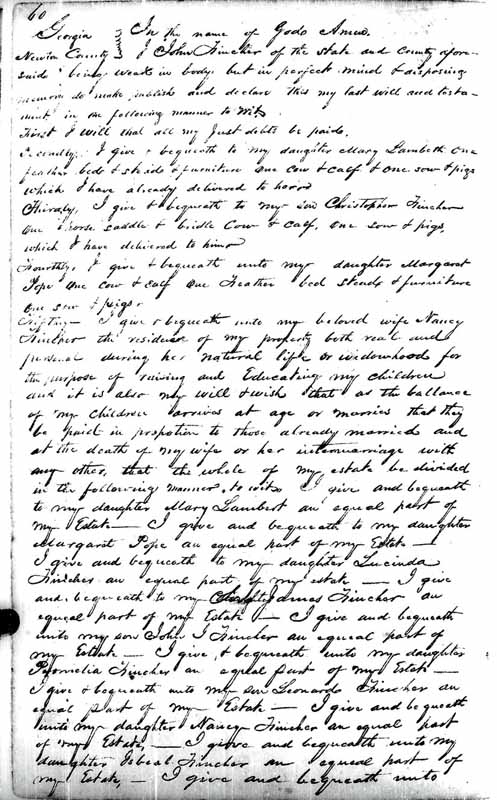 60
Georgia In the name of Gods Amen.
Newton County I John Fincher of the state and county afore-
said being weak in body but in perfect mind & disposing
memory do make publish and declare this my last will and testa-
ment in the following manner to wit
First I will that all my Just debts be paid.
Secondly. I give & bequeath to my daughter Mary Lambeth one
feather bed & steads & furniture one cow & calf & one sow & pigs
which I have already delivered to her
Thirdly, I give & bequeath to my son Christopher Fincher
one horse saddle & bridle Cow & calf, one sow & pigs,
which I have delivered to him
Fourthly, I give & bequeath unto my daughter Margaret
Pope one cow & calf one Feather bed steads & furniture
one sow & pigs.
I give & bequeath unto my beloved wife Nancy
Fincher the residue of my property both real and
personal during her natural life or widowhood for
the purpose of raising and Educating my children
and it is also my will & wish that as the ballance
of my children arrives at age or marries that they
be paid in propotion to those already married and
at the death of my wife or her intermarriage with
any other, that the whole of my estate be divided
in the following manner, to wit I give and bequeath
to my daughter Mary Lambert an equal part of
my Estate — I give and bequeath to my daughter
Margaret Pope an equal part of my Estate —
I give and bequeath to my daughter Lucinda
Fincher an equal part of my estate — I give
and bequeath to my James Fincher an
equal part of my Estate — I give and bequeath
unto my son John J Fincher an equal part of
my Estate — I give & bequeath unto my daughter
Permelia Fincher an equal part of my Estate —
I give & bequeath unto my son Leonard Fincher an
equal part of my Estate — I give and bequeath
unto my daughter Nancy Fincher an equal part
of my Estate, — I give and bequeath unto my
daughter Isbeal Fincher an equal part of
my Estate, — I give and bequeath unto